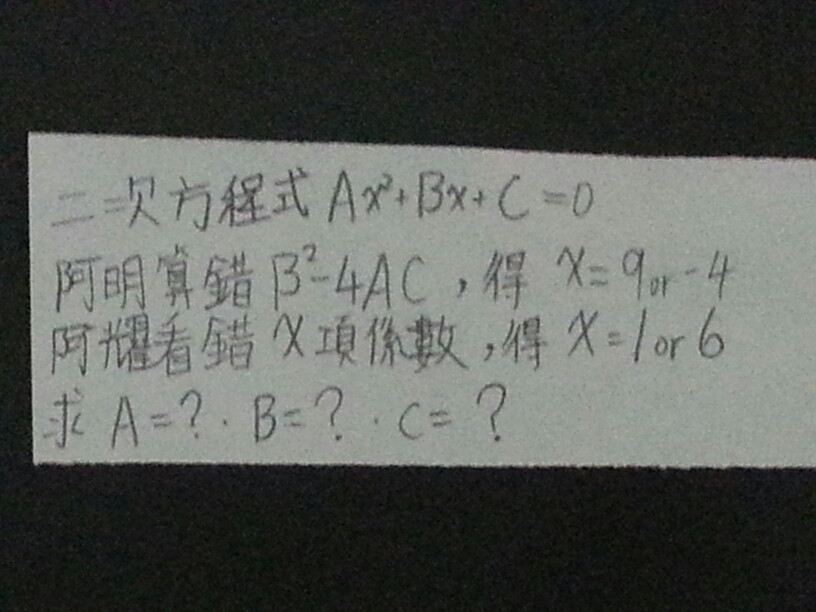 二次方程式 Ax²+Bx+C=0
阿明算錯 B²-4AC，得 x=9 or -4
阿耀看錯 X項係數，得 X=1 or 6
求 A=?．B=?．C=?